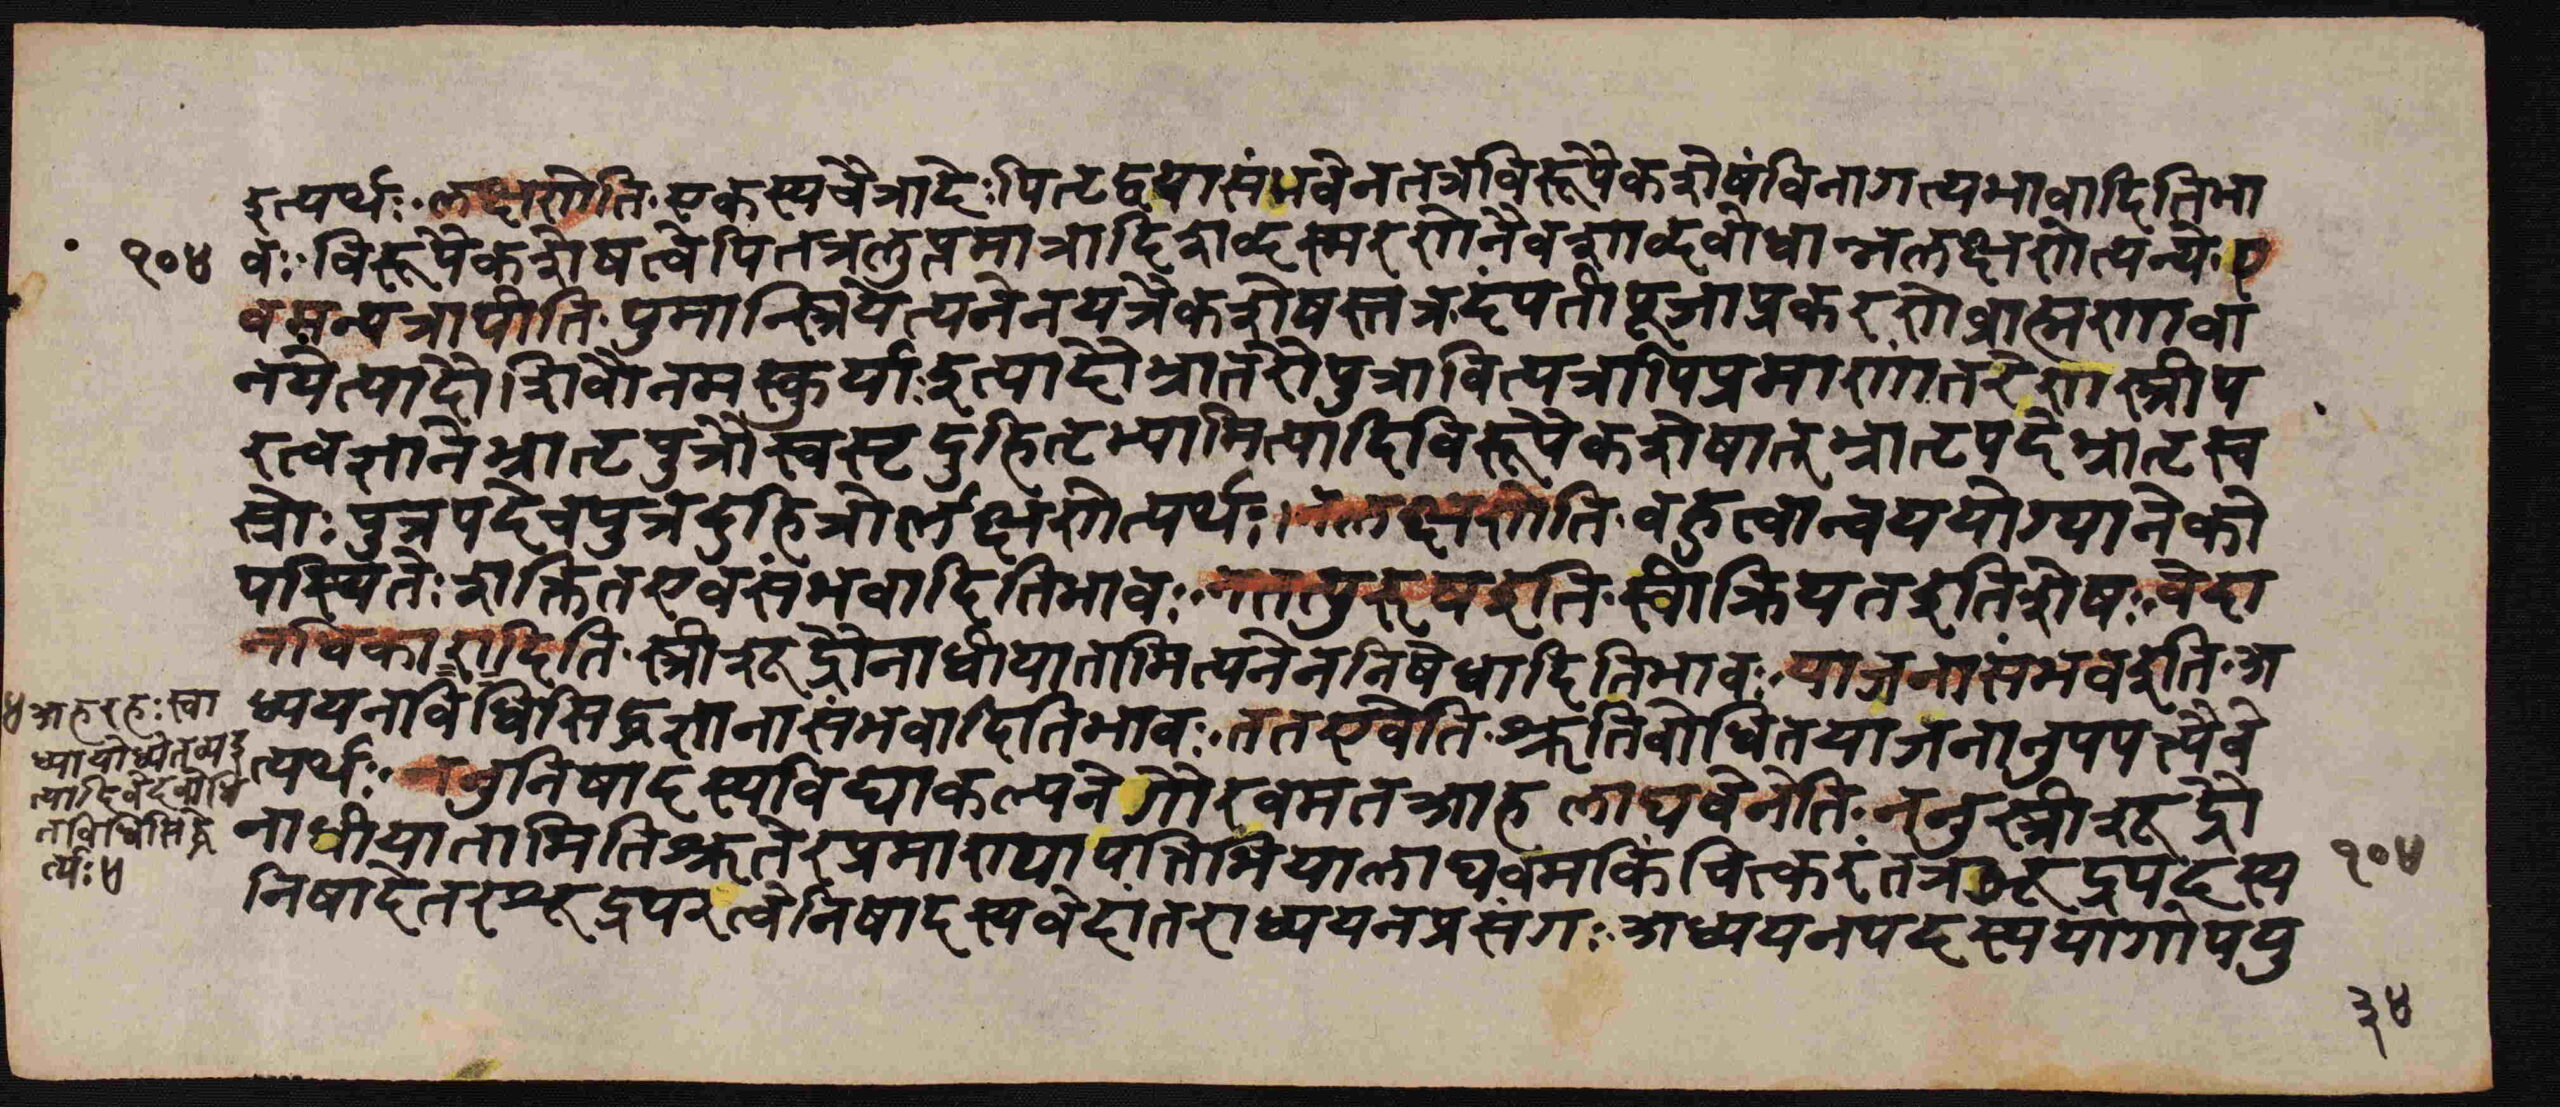 इत्यर्थः लक्षणेति एकस्य चैत्रादेः पितृद्वयासंभवेन तत्र विरूपैकशेषं विना गत्यभावादिति भा
१०४ वः विरूपैकशेषत्वेपि तत्र लुप्तमात्रादिशब्दस्मरणेनैव शाब्दबोधान्न लक्षणेत्यन्ये ए
वमन्यत्रापीति पुमान्स्त्रियेत्यनेन यत्रैकशेषस्तत्र दंपतीपूजाप्रकरणे ब्राह्मणावा
नयेत्यादौ शिवौ नमस्कुर्याः इत्यादौ भ्रातरौ पुत्रावित्यत्रापि प्रमाणांतरेण स्त्रीप
रत्वज्ञाने भ्रातृपुत्रौ स्वसृदुहितृभ्यामित्यादिविरूपैकशेषात् भ्रातृपदे भ्रातृस्व
स्रोः पुत्रपदे च पुत्रदुहित्रोर्लक्षणेत्यर्थः न लक्षणेति बहुत्वान्वययोग्यानेको
पस्थितेः शक्तित एव संभवादिति भावः न तत्पुरुष इति स्वीक्रियत इति शेषः वेदा
नधिकारादिति स्त्रीशूद्रौ नाधीयातामित्यनेन निषेधादिति भावः याजनासंभव इति अ
ध्ययनविधिसिद्धज्ञानासंभवादिति भावः तत एवेति श्रुतिबोधितयाजनानुपपत्त्यैवे
त्यर्थः ननु निषादस्य विद्याकल्पने गौरवमत आह लाघवेनेति ननु स्त्रीशूद्रौ
नाधीयातामिति श्रुतेरप्रमाण्यापत्तिभिया लाघवमकिंचित्करं तत्र शूद्रपदस्य १०४
निषादेतरशूद्रपरत्वे निषादस्य वेदांतराध्ययनप्रसंगः अध्ययनपदस्य यागोपयु
४ अहरहः स्वा
ध्यायोध्येतव्य इ
त्यादिवेदबोधि
तविधिसिद्धे
त्यः ४
३४